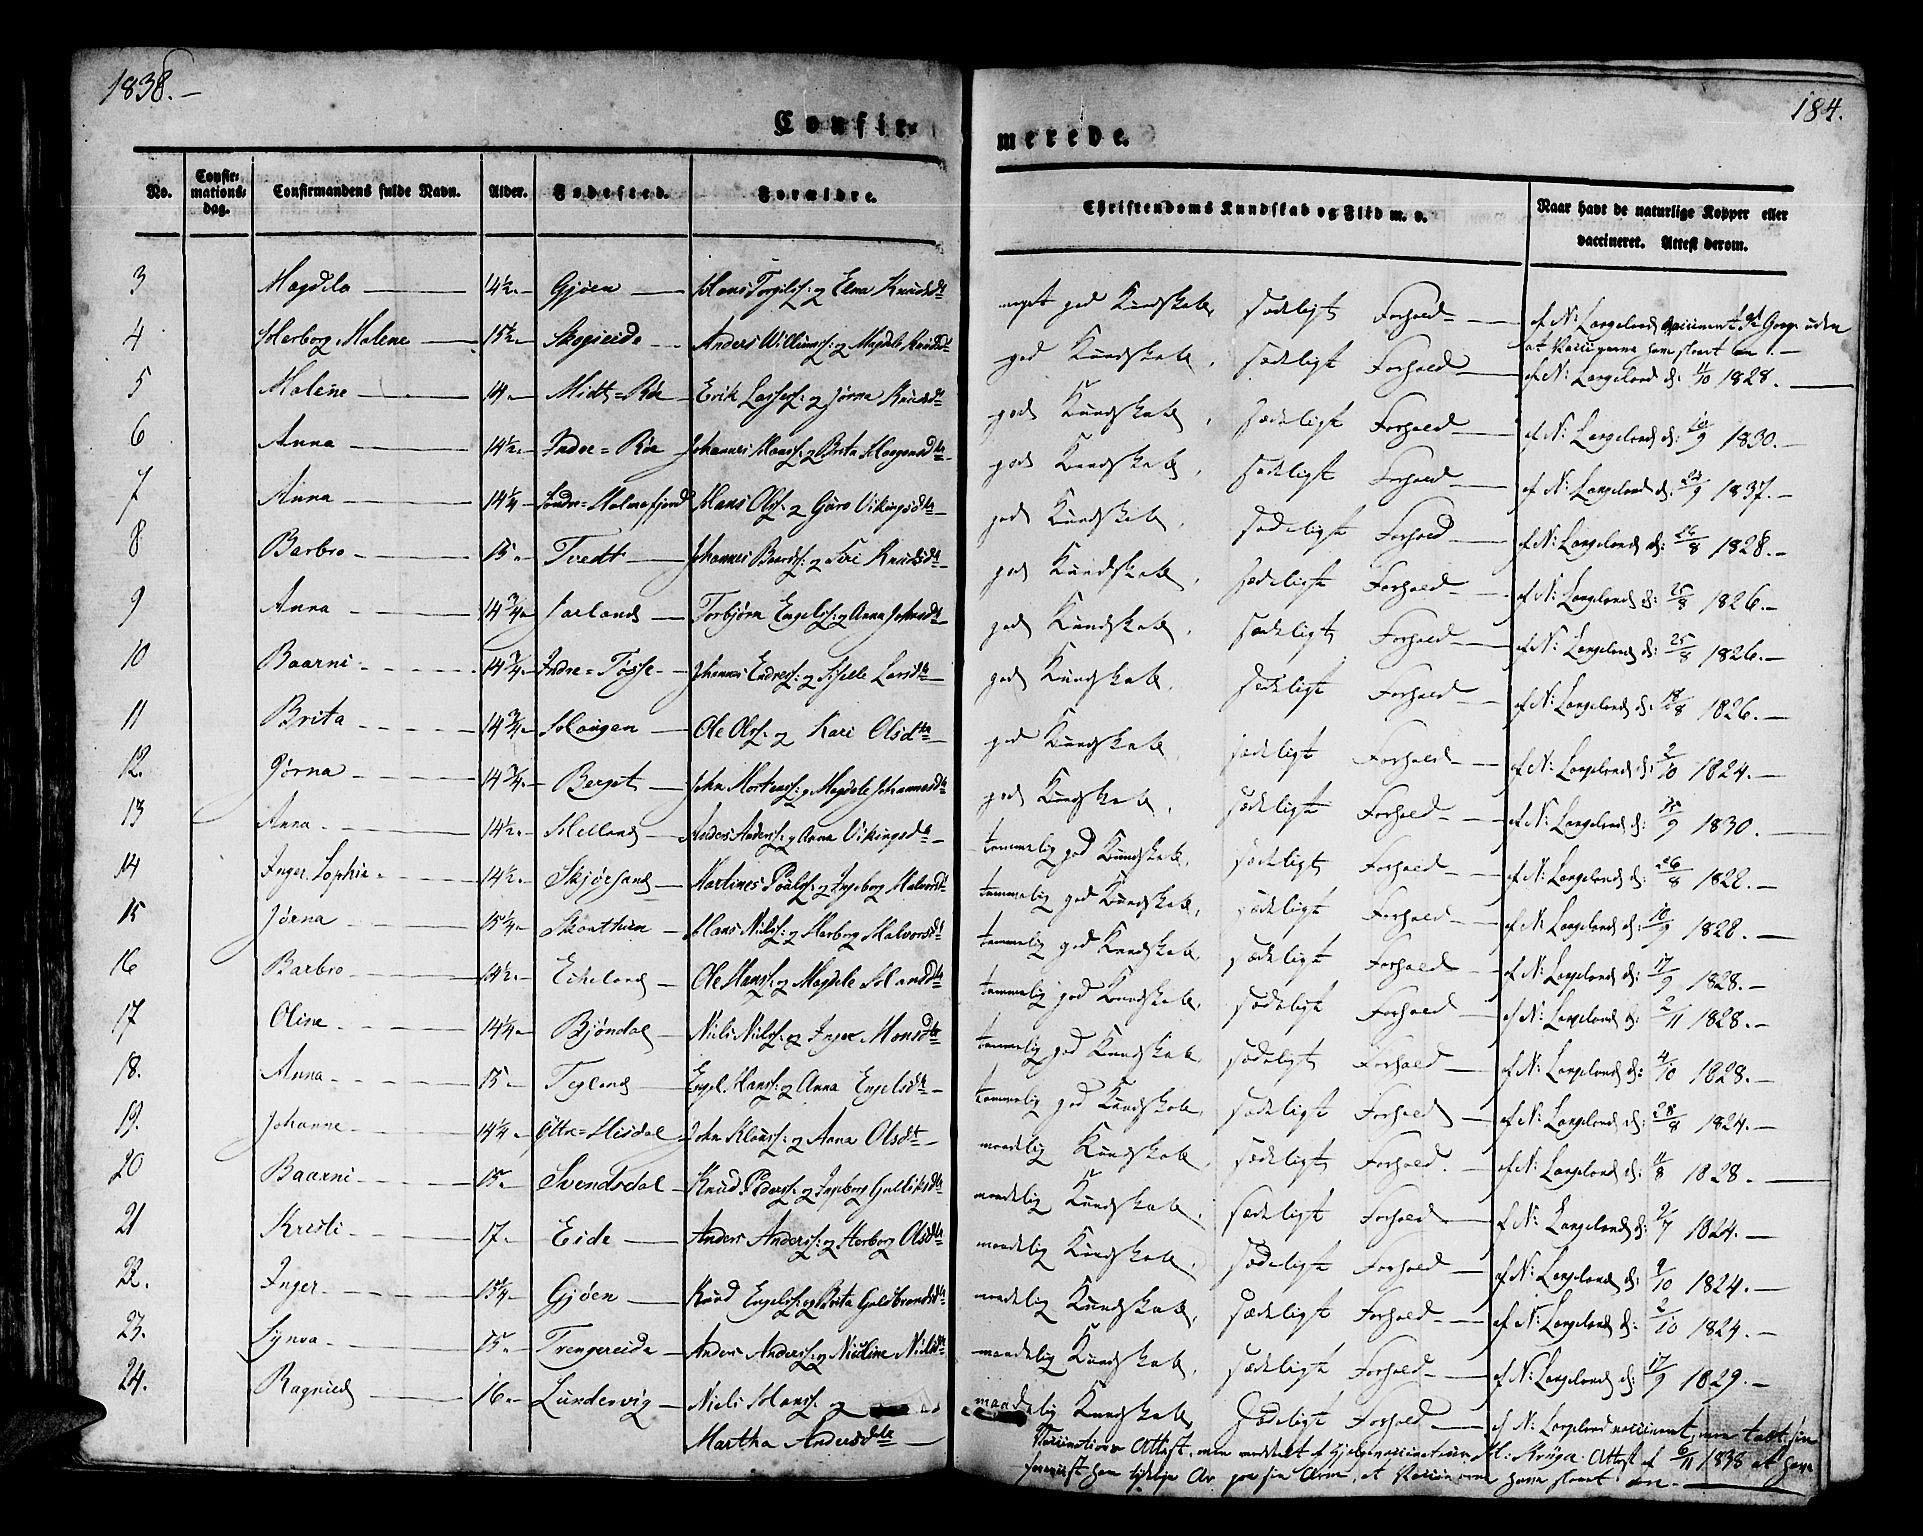 1838.
184.
Confirmerede.
No. Confirmationsdag. Confirmandens fulde Navn. Alder. Fødested. Forældre. Christendoms Kundskab og Flid m. v. Naar havt de naturlige Kopper eller vaccineret. Attest derom.
3 Magdela 14½ Gjøen Hans Torgilss: og Elna Knudsdt meget god Kundskab, sædeligt Forhold af N: Langeland vaccineret Gange uden at Vaccinerne have slaaet an.
4 Herborg Malene 15½ Skogseide Anders Willumss: og Magdele Knudsdt god Kundskab, sædeligt Forhold af N: Langeland d: 11/10 1828.
5 Malene 14 Midt=Røe Erik Larsess: og Jørna Knudsdt god Kundskab, sædeligt Forhold af N: Langeland d: 10/9 1830.
6 Anna 14½ Indre=Røe Johannes Hanss: og Brita Haagensdtr god Kundskab, sædeligt Forhold af N: Langeland d: 24/9 1837.
7 Anna 14¼ Søndre=Holmefjord Hans Olss: og Guro Vikingsdtr god Kundskab, sædeligt Forhold af N: Langeland d: 26/8 1828.
8 Barbro 15 Tvedt Johannes Baardss: og Siri Knudsdtr god Kundskab, sædeligt Forhold af N: Langeland d: 25/8 1826.
9 Anna 14¾ Jarland Torbjørn Engelss: og Anna Johnsdt god Kundskab, sædeligt Forhold af N: Langeland d: 25/8 1826.
10 Baarni 14¾ Indre=Tøsse Johannes Endress: og Sisele Larsdtr god Kundskab, sædeligt Forhold af N: Langeland d: 18/8 1826.
11 Brita 14¾ Hougen Ole Olss: og Kari Olsdtr god Kundskab, sædeligt Forhold af N: Langeland d: 2/10 1824.
12. Jørna 14¾ Berget John Mortenss: og Magdele Johannesdt god Kundskab, sædeligt Forhold af N: Langeland d: 15/9 1830.
13 Anna 14½ Helland Anders Anderss: og Anna Vikingsdtr temmelig god Kundskab, sædeligt Forhold af N: Langeland d: 26/8 1822.
14 Inger Sophie 14½ Skjørsand Martines Poulss: og Ingeborg Halvorsdt temmelig god Kundskab, sædeligt Forhold af N: Langeland d: 10/9 1828.
15 Jørna 15¼ Skaathun Hans Nielss: og Herborg Halvorsdt temmelig god Kundskab, sædeligt Forhold af N: Langeland d: 17/9 1828.
16 Barbro 14½ Eikeland Ole Hanss: og Magdele dtr temmelig god Kundskab, sædeligt Forhold af N: Langeland d: 2/11 1828.
17 Oline 14¼ Bjøndal Niels Nielss: og Inger Monsdtr temmelig god Kundskab, sædeligt Forhold af N: Langeland d: 4/10 1828.
18. Anna 15 Tegland Engel Hanss: og Anna Engelsdtr temmelig god Kundskab, sædeligt Forhold af N: Langeland d: 28/8 1824.
19. Johanne 14¼ Øttre=Hisdal John Klauss: og Anna Olsdt maadelig Kundskab, sædeligt Forhold. af N: Langeland d: 11/8 1828.
20 Baarni 15 Svendsdal Knud Pederss: og Ingeborg Gulliksdtr maadelig Kundskab, sædeligt Forhold af N: Langeland d: 2/7 1824.
21 Kristi 17 Eide Anders Anderss: og Herborg Olsdtr maadelig Kundskab, sædeligt Forhold af N: Langeland d: 9/10 1824.
22. Inger 15¼ Gjøen Knud Engelss: og Brita Guldbrandsdtr maadelig Kundskab, sædeligt Forhold af N: Langeland d: 2/10 1824.
23. Synva 15 Trengereide Anders Anderss: og Nicoline Nielsdt maadelig Kundskab, sædeligt Forhold af N: Langeland d: 17/9 1829.
24. Ragnild 16 Lundervig Niels Hanss og maadelig Kundskab, sædeligt Forhold af N: Langeland vaccineret, men tabt sin
Martha Andersdtr
Vaccinations Attest, men meddeelt af Hjelpevaccinateur H: Krüger Attest af 6/11 1838 at have
forevist ham tydelige Ar paa sin Arm, at Vaccinerne have slaaet an.